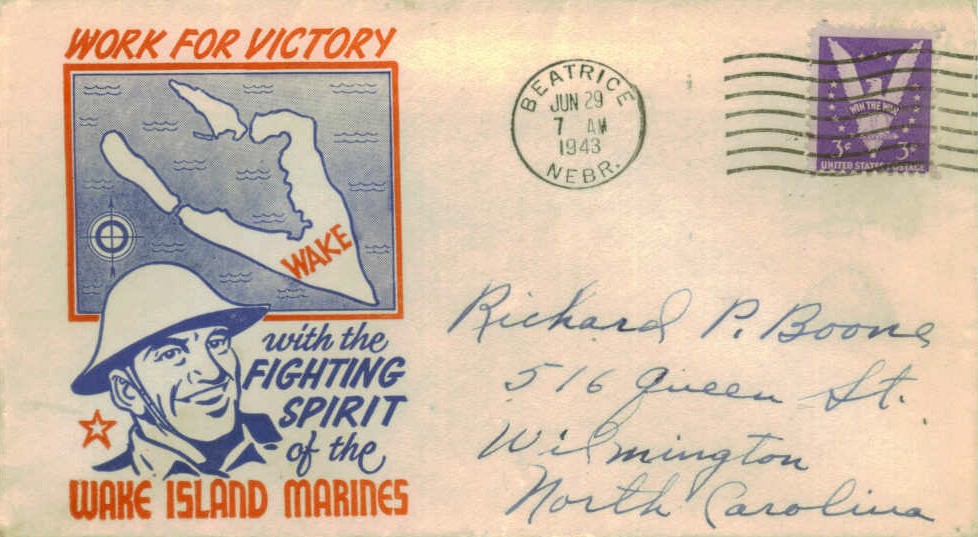 WORK FOR VICTORY
WAKE
with the
FIGHTING
SPIRIT
of the
WAKE ISLAND MARINES
BEATRICE
JUN 29
7 AM
1943
NEBR.
WIN THE WAR
3¢ 3¢
UNITED STATES POSTAGE
Richard P. Boone
516 Queen St.
Wilmington
North Carolina